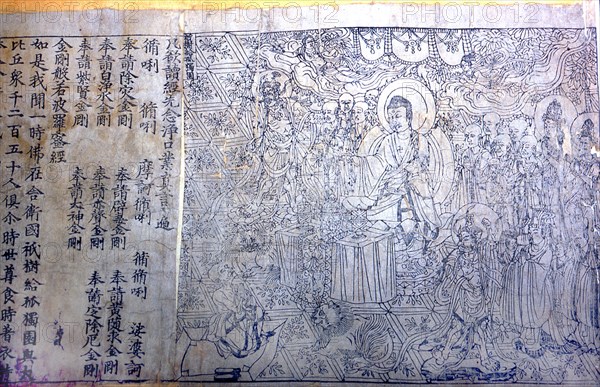 凡欲讀經先念淨口業真言一遍
脩唎 脩唎 摩訶脩唎 脩脩唎 婆訶
奉請除灾金剛 奉請辟毒金剛 奉請黃隨求金剛
奉請白淨水金剛 奉請赤聲金剛 奉請定除厄金剛
奉請紫賢金剛 奉請大神金剛
金剛般若波羅蜜經
如是我聞一時佛在舍衛國祇樹給孤獨園與
比丘衆千二百五十人俱尒時世尊食時著衣
PHOTO12